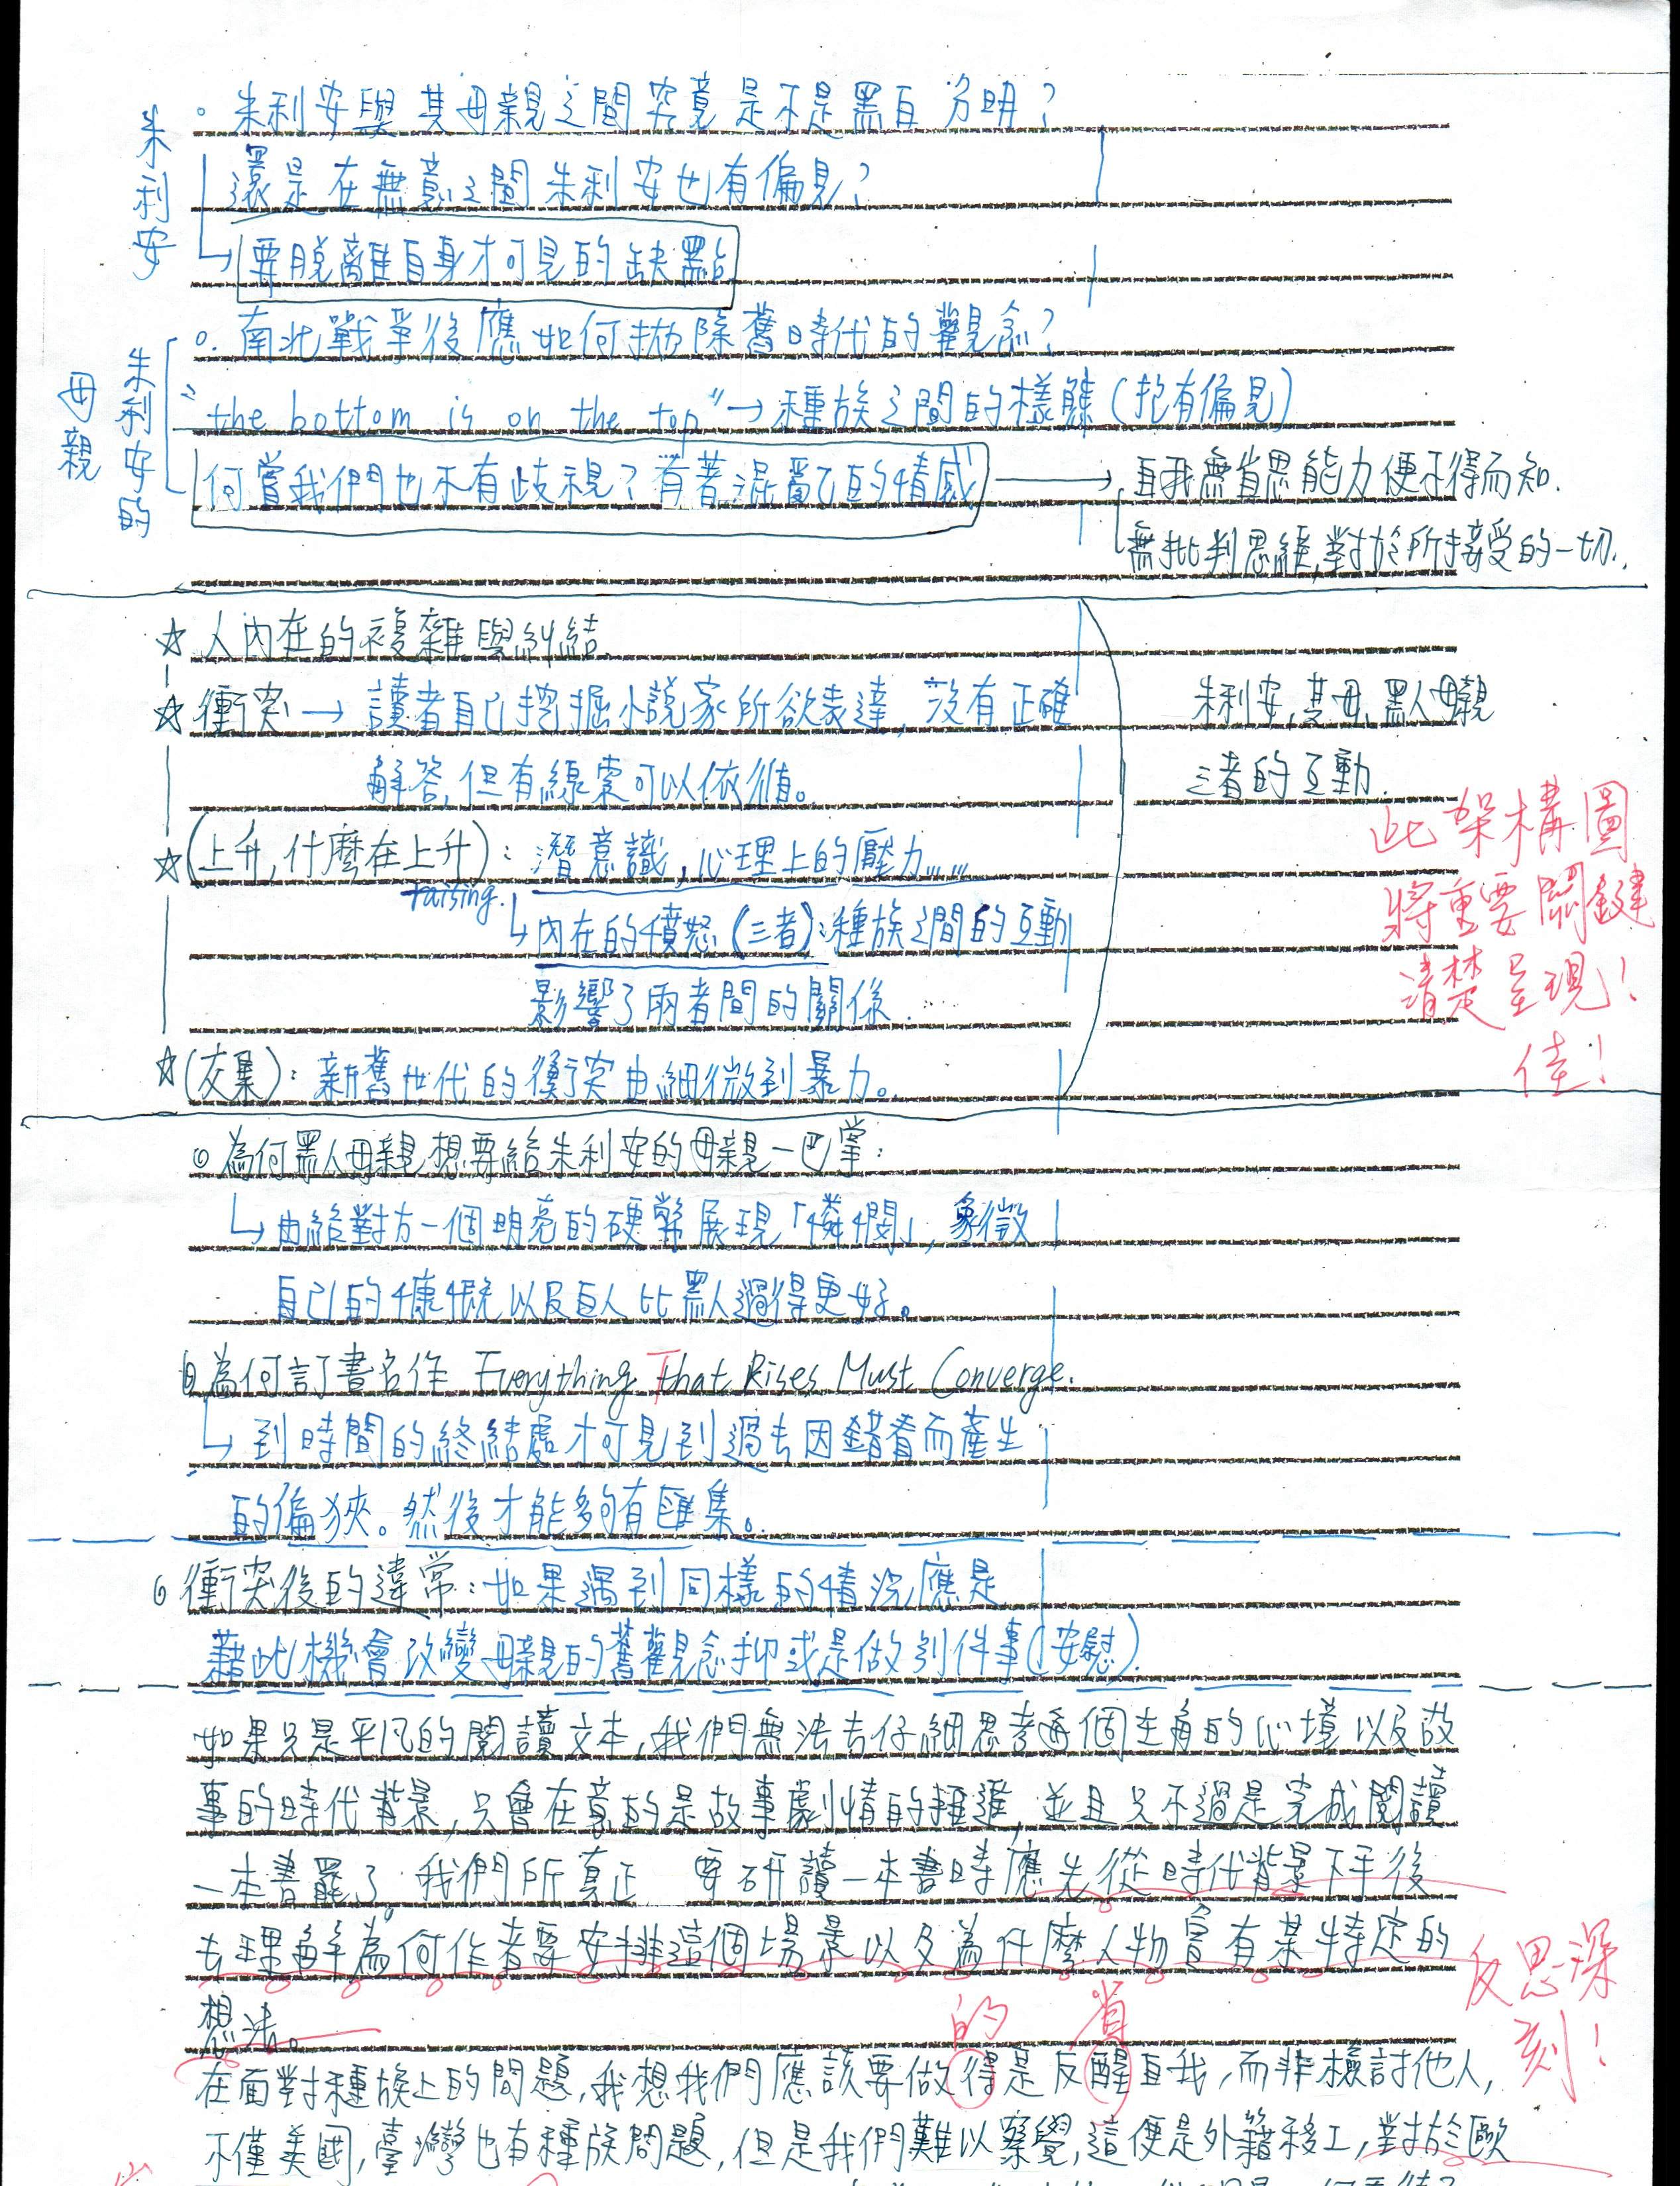 朱利安
。朱利安與其母親之間究竟是不是黑白分明？
還是在無意之間朱利安也有偏見？
要脫離自身才可見的缺點
朱利安的
母親
。南北戰爭後應如何拋除舊時代的觀念？
"the bottom is on the top"→種族之間的樣態(抱有偏見)
何嘗我們也不有歧視？有著混亂的情感
自我無省思能力便不得而知.
無批判思維,對於所接受的一切.
☆人內在的複雜與糾結
☆衝突→讀者自己挖掘小說家所欲表達,沒有正確
解答,但有線索可以依循。
朱利安,其母,黑人母親
三者的互動.
☆(上升,什麼在上升):潛意識,心理上的壓力......
raising.
內在的憤怒(三者):種族之間的互動
影響了兩者間的關係.
☆(交集):新舊世代的衝突由細微到暴力。
此架構圖
將重要關鍵
清楚呈現!
佳!
◎為何黑人母親想要給朱利安的母親一巴掌:
↳由給對方一個明亮的硬幣展現「憐憫」,象徵
自己的慷慨以及白人比黑人過得更好。
◎為何訂書名作 Everything That Rises Must Converge.
↳到時間的終結處才可見到過去因錯看而產生
的偏狹。然後才能夠有匯集。
◎衝突後的違常:如果遇到同樣的情況應是
藉此機會改變母親的舊觀念抑或是做別件事(安慰).
如果只是平凡的閱讀文本,我們無法去仔細思考每個主角的心境以及故
事的時代背景,只會在意的是故事劇情的推進,並且只不過是完成閱讀
一本書罷了.我們所真正 要研讀一本書時應先從時代背景下手後
去理解為何作者要安排這個場景以及為什麼人物會有某特定的
想法。
反思深
刻!
的 省
在面對種族上的問題,我想我們應該要做得是反醒自我,而非檢討他人,
不僅美國,臺灣也有種族問題,但是我們難以察覺,這便是外籍移工,對於歐